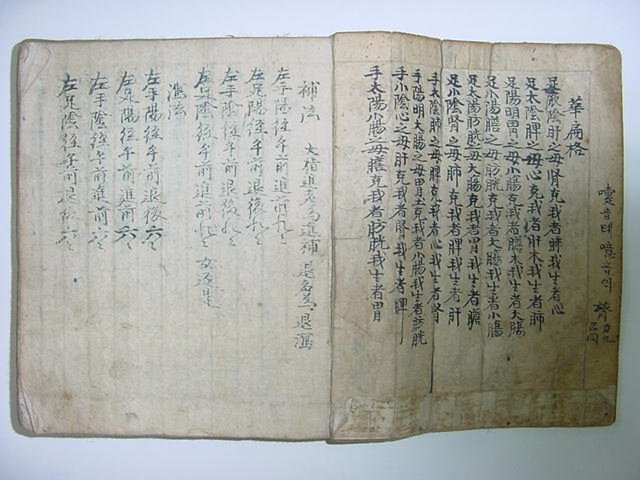 嚏音테 噫音의
華扁格
足厥陰肝之母腎克我者肺我生者心
足太陰脾之母心克我者肝木我生者肺
足陽明胃之母小腸克我者膽木我生者大腸
足小陽膽之母肪胱克我者大腸我生者小腸
足太陽肪胱之母大腸克我者胃我生者膽
足小陰腎之母肺克我者脾我生者肝
手太陰肺之母脾克我者心我生者腎
手陽明大腸之母胃土克我者小腸我生者肪胱
手小陰心之母肝克我者腎我生者脾
手太陽小腸之母膽克我者肪胱我生者胃
補法 大指進者爲進補 退者爲退瀉
左手陽經午前進前九々
左足陽經午前退後九々
左手陰經午前退後九々
左足陰經午前進前九々 女逆是
瀉法
左手陽經午前退後六々
左足陽經午前進前六々
左手陰經午前進前六々
左足陰經午前退後六々